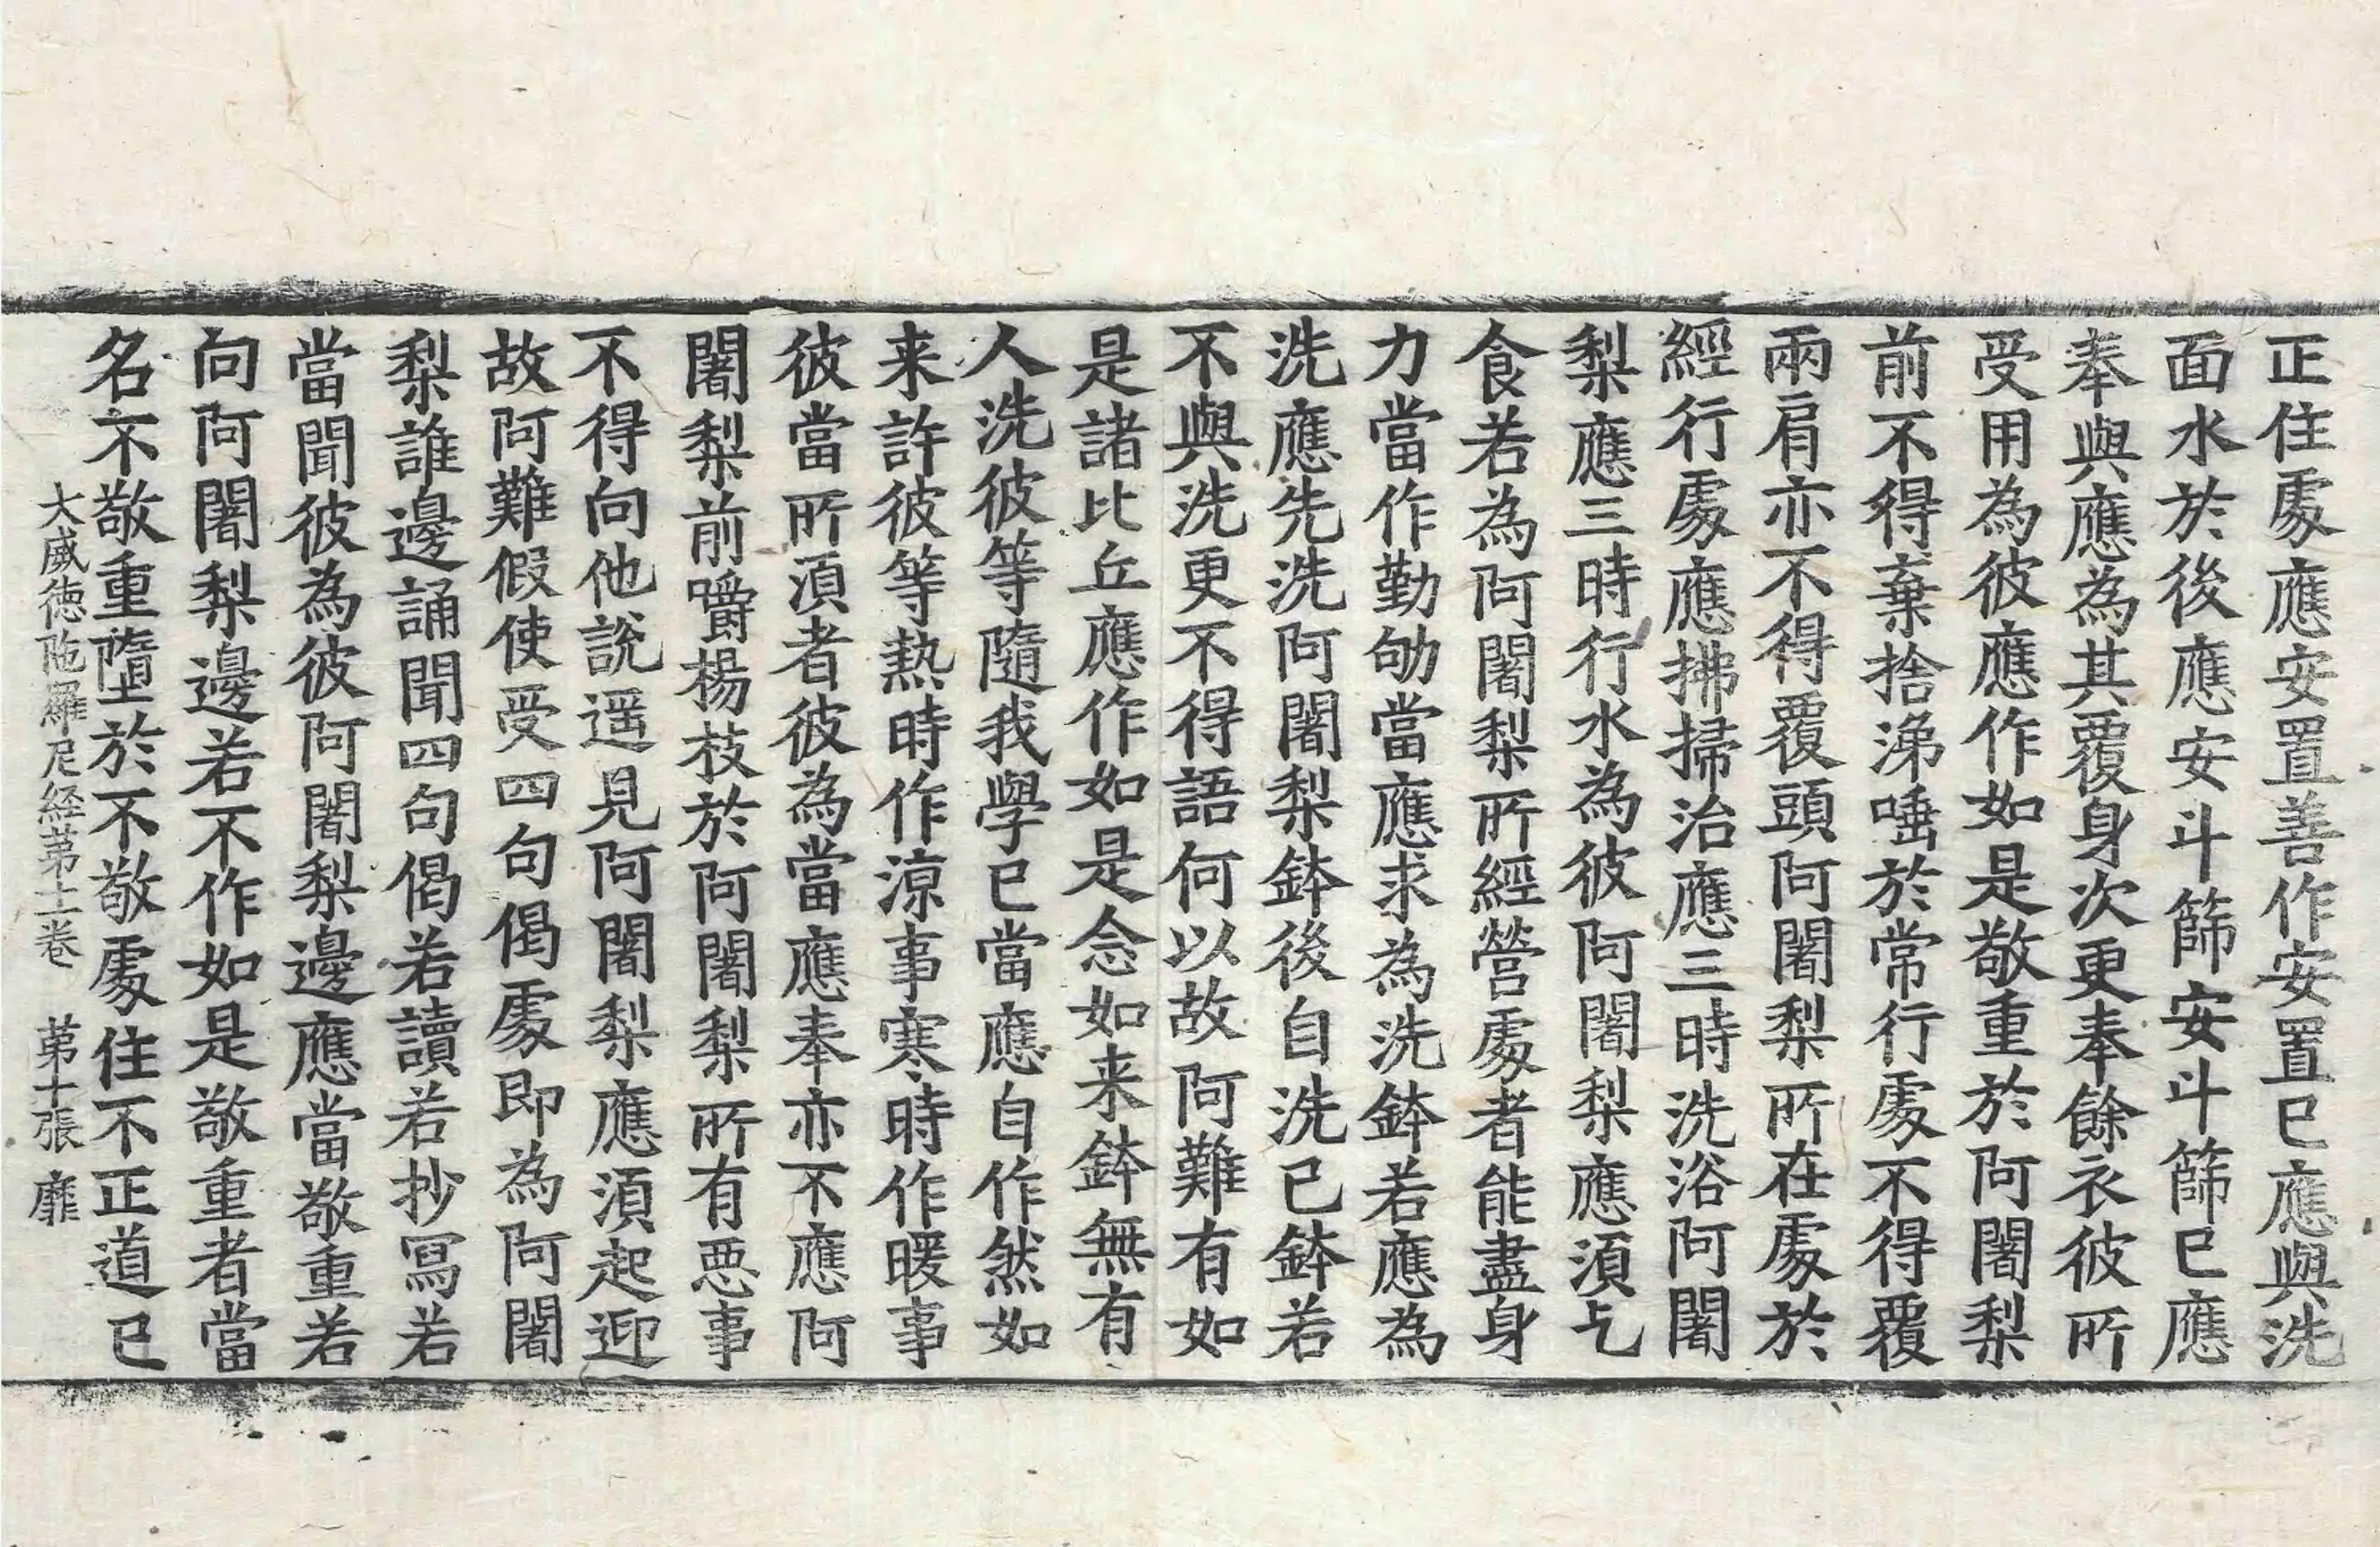 正住處應安置善作安置已應與洗
面水於後應安斗篩安斗篩已應
奉與應為其覆身次更奉餘衣彼所
受用為彼應作如是敬重於阿闍梨
前不得棄捨涕唾於常行處不得覆
兩肩亦不得覆頭阿闍梨所在處於
經行處應拂掃治應三時洗浴阿闍
梨應三時行水為彼阿闍梨應須乞
食若為阿闍梨所經營處者能盡身
力當作勤劬當應求為洗鉢若應為
洗應先洗阿闍梨鉢後自洗已鉢若
不與洗更不得語何以故阿難有如
是諸比丘應作如是念如来鉢無有
人洗彼等隨我學已當應自作然如
来許彼等熱時作涼事寒時作暖事
彼當所須者彼為當應奉亦不應阿
闍梨前嚼楊枝於阿闍梨所有惡事
不得向他說遥見阿闍梨應須起迎
故阿難假使受四句偈處即為阿闍
梨誰邊誦聞四句偈若讀若抄寫若
當聞彼為彼阿闍梨邊應當敬重若
向阿闍梨邊若不作如是敬重者當
名不敬重墮於不敬處住不正道已
大威徳陁羅尼経苐十二卷　苐十張　靡